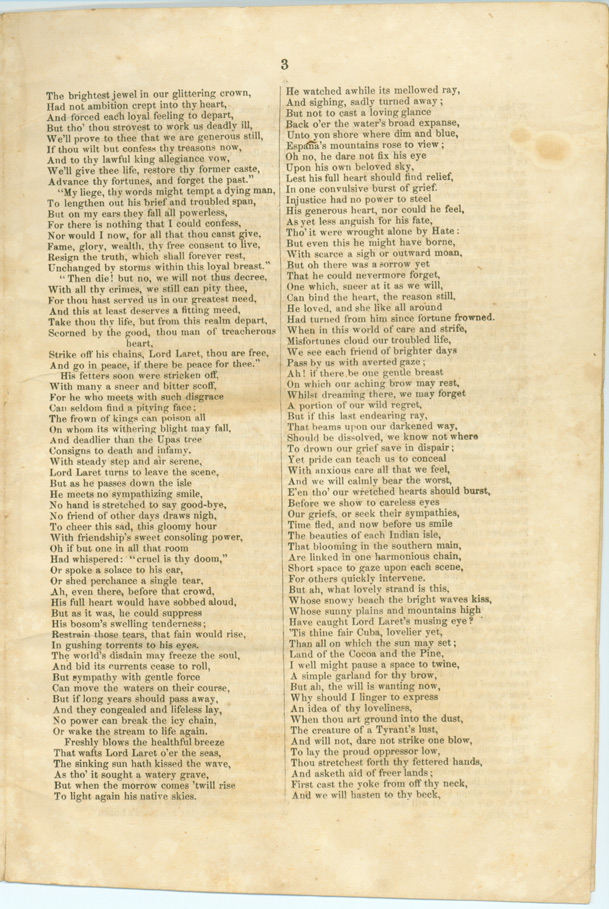 3
The brightest jewel in our glittering crown,
Had not ambition crept into thy heart,
And forced each loyal feeling to depart,
But tho' thou strovest to work us deadly ill,
We'll prove to thee that we are generous still,
If thou wilt but confess thy treasons now,
And to thy lawful king allegiance vow,
We'll give thee life, restore thy former caste,
Advance thy fortunes, and forget the past."
"My liege, thy words might tempt a dying man,
To lengthen out his brief and troubled span,
But on my ears they fall all powerless,
For there is nothing that I could confess,
Nor would I now, for all that thou canst give,
Fame, glory, wealth, thy free consent to live,
Resign the truth, which shall forever rest,
Unchanged by storms within this loyal breast."
"Then die! but no, we will not thus decree,
With all thy crimes, we still can pity thee,
For thou hast served us in our greatest need,
And this at least deserves a fitting meed,
Take thou thy life, but from this realm depart,
Scorned by the good, thou man of treacherous
heart,
Strike off his chains, Lord Laret, thou are free,
And go in peace, if there be peace for thee."
His fetters soon were stricken off,
With many a sneer and bitter scoff,
For he who meets with such disgrace
Can seldom find a pitying face;
The frown of kings can poison all
On whom its withering blight may fall,
And deadlier than the Upas tree
Consigns to death and infamy.
With steady step and air serene,
Lord Laret turns to leave the scene,
But as he passes down the isle
He meets no sympathizing smile,
No hand is stretched to say good-bye,
No friend of other days draws nigh,
To cheer this sad, this gloomy hour
With friendship's sweet consoling power,
Oh if but one in all that room
Had whispered: "cruel is thy doom,"
Or spoke a solace to his ear,
Or shed perchance a single tear,
Ah, even there, before that crowd,
His full heart would have sobbed aloud,
But as it was, he could suppress
His bosom's swelling tenderness;
Restrain those tears, that fain would rise,
In gushing torrents to his eyes.
The world's disdain may freeze the soul,
And bid its currents cease to roll,
But sympathy with gentle force
Can move the waters on their course,
But if long years should pass away,
And they congealed and lifeless lay,
No power can break the icy chain,
Or wake the stream to life again.
Freshly blows the healthful breeze
That wafts Lord Laret o'er the seas,
The sinking sun hath kissed the wave,
As tho' it sought a watery grave,
But when the morrow comes 'twill rise
To light again his native skies.
He watched awhile its mellowed ray,
And sighing, sadly turned away;
But not to cast a loving glance
Back o'er the water's broad expanse,
Unto yon shore where dim and blue,
España's mountains rose to view;
Oh no, he dare not fix his eye
Upon his own beloved sky,
Lest his full heart should find relief,
In one convulsive burst of grief.
Injustice had no power to steel
His generous heart, nor could he feel,
As yet less anguish for his fate,
Tho' it were wrought alone by Hate:
But even this he might have borne,
With scarce a sigh or outward moan,
But oh there was a sorrow yet
That he could nevermore forget,
One which, sneer at it as we will,
Can bind the heart, the reason still,
He loved, and she like all around
Had turned from him since fortune frowned.
When in this world of care and strife,
Misfortunes cloud our troubled life,
We see each friend of brighter days
Pass by us with averted gaze;
Ah! if there be one gentle breast
On which our aching brow may rest,
Whilst dreaming there, we may forget
A portion of our wild regret,
But if this last endearing ray,
That beams upon our darkened way,
Should be dissolved, we know not where
To drown our grief save in dispair;
Yet pride can teach us to conceal
With anxious care all that we feel,
And we will calmly bear the worst,
E'en tho' our wretched hearts should burst,
Before we show to careless eyes
Our griefs, or seek their sympathies,
Time fled, and now before us smile
The beauties of each Indian isle,
That blooming in the southern main,
Are linked in one harmonious chain,
Short space to gaze upon each scene,
For others quickly intervene.
But ah, what lovely strand is this,
Whose snowy beach the bright waves kiss,
Whose sunny plains and mountains high
Have caught Lord Laret's musing eye?
'Tis thine fair Cuba, lovelier yet,
Than all on which the sun may set;
Land of the Cocoa and the Pine,
I well might pause a space to twine,
A simple garland for thy brow,
But ah, the will is wanting now,
Why should I linger to express
An idea of thy loveliness,
When thou art ground into the dust,
The creature of a Tyrant's lust,
And will not, dare not strike one blow,
To lay the proud oppressor low,
Thou stretchest forth thy fettered hands,
And asketh aid of freer lands;
First cast the yoke from off thy neck,
And we will hasten to thy beck,